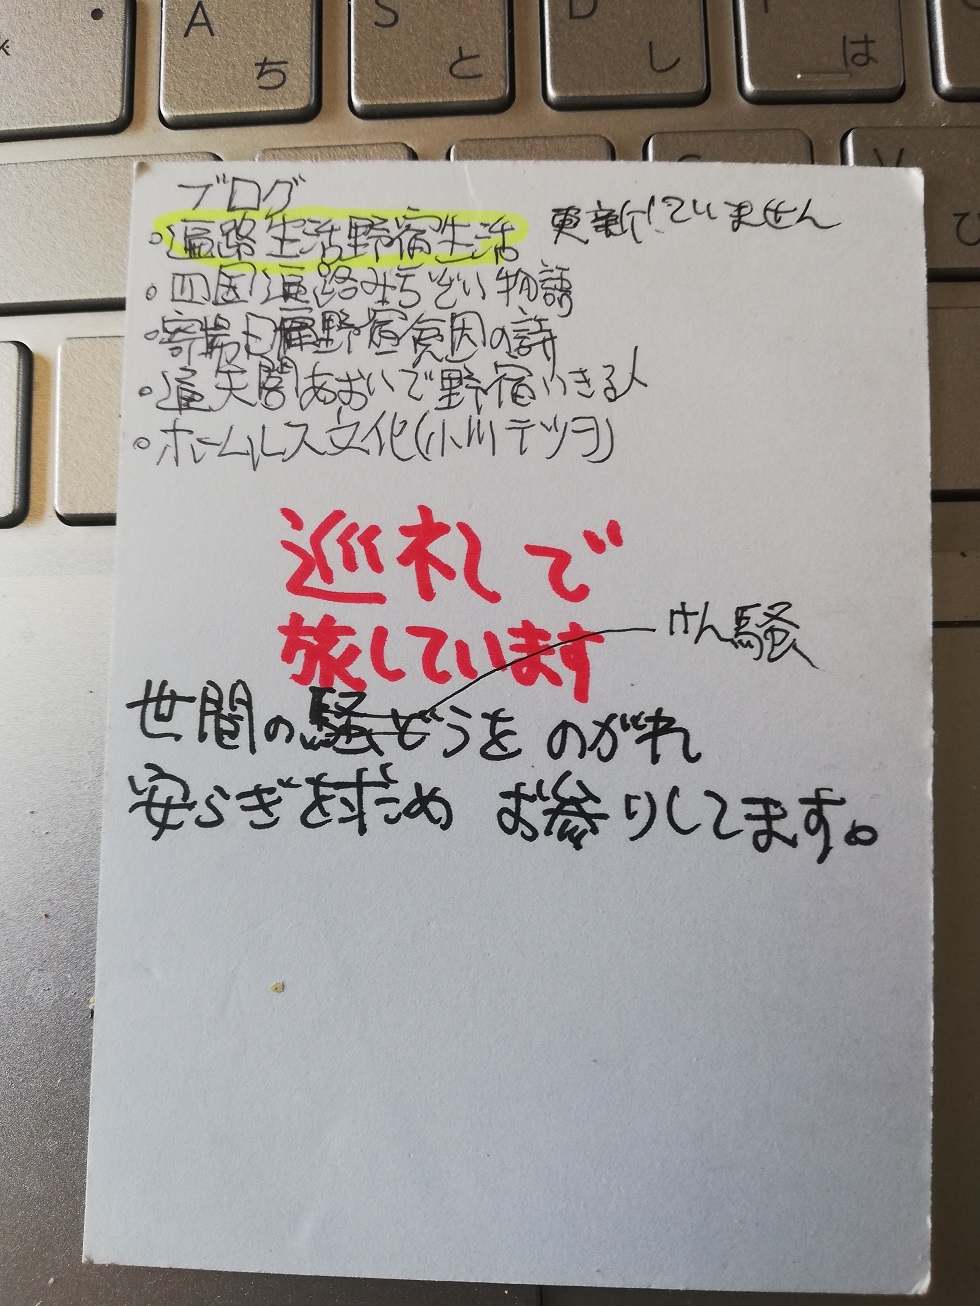 A
ち
S
と
D
し
は
ひ
ブログ
。遍路生活野宿生活 更新していません
。四国遍路みちぞい物語
。寄場日雇野宿 の詩
。 あおいで野宿いきる人
。ホームレス文化(小川テツヲ)
巡礼で
旅しています
けん騒
世間の騒どうをのがれ
安らぎを求め お参りしてます。